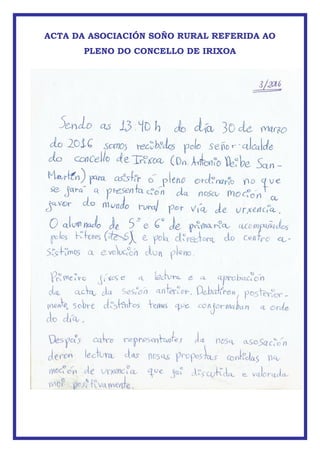 ACTA DA ASOCIACIÓN SOÑO RURAL REFERIDA AO
PLENO DO CONCELLO DE IRIXOA
3/2016
Sendo as 13:40 h do día 30 de marzo
do 2016 somos recibidos polo señor alcalde
do concello de Irixoa (Dn. Antonio Deibe San-
Martín) para asistir ó pleno ordinario no que
se fará a presentación da nosa moción a
favor do mundo rural por vía de urxencia.
O alumnado de 5º e 6º de primaria acompañados
polos titores e pola directora do centro a-
sistimos a evolución dun pleno.
Primeiro fixose a lectura e a aprobación
da acta da sesión anterior. Debatiron, posterior-
mente, sobre distintos temas que conformaban a orde
do día.
Despois catro representantes da nosa asosación
deron lectura das nosas propostas contidas na
moción de urxencia que foi discutida e valorada
moi positivamente.